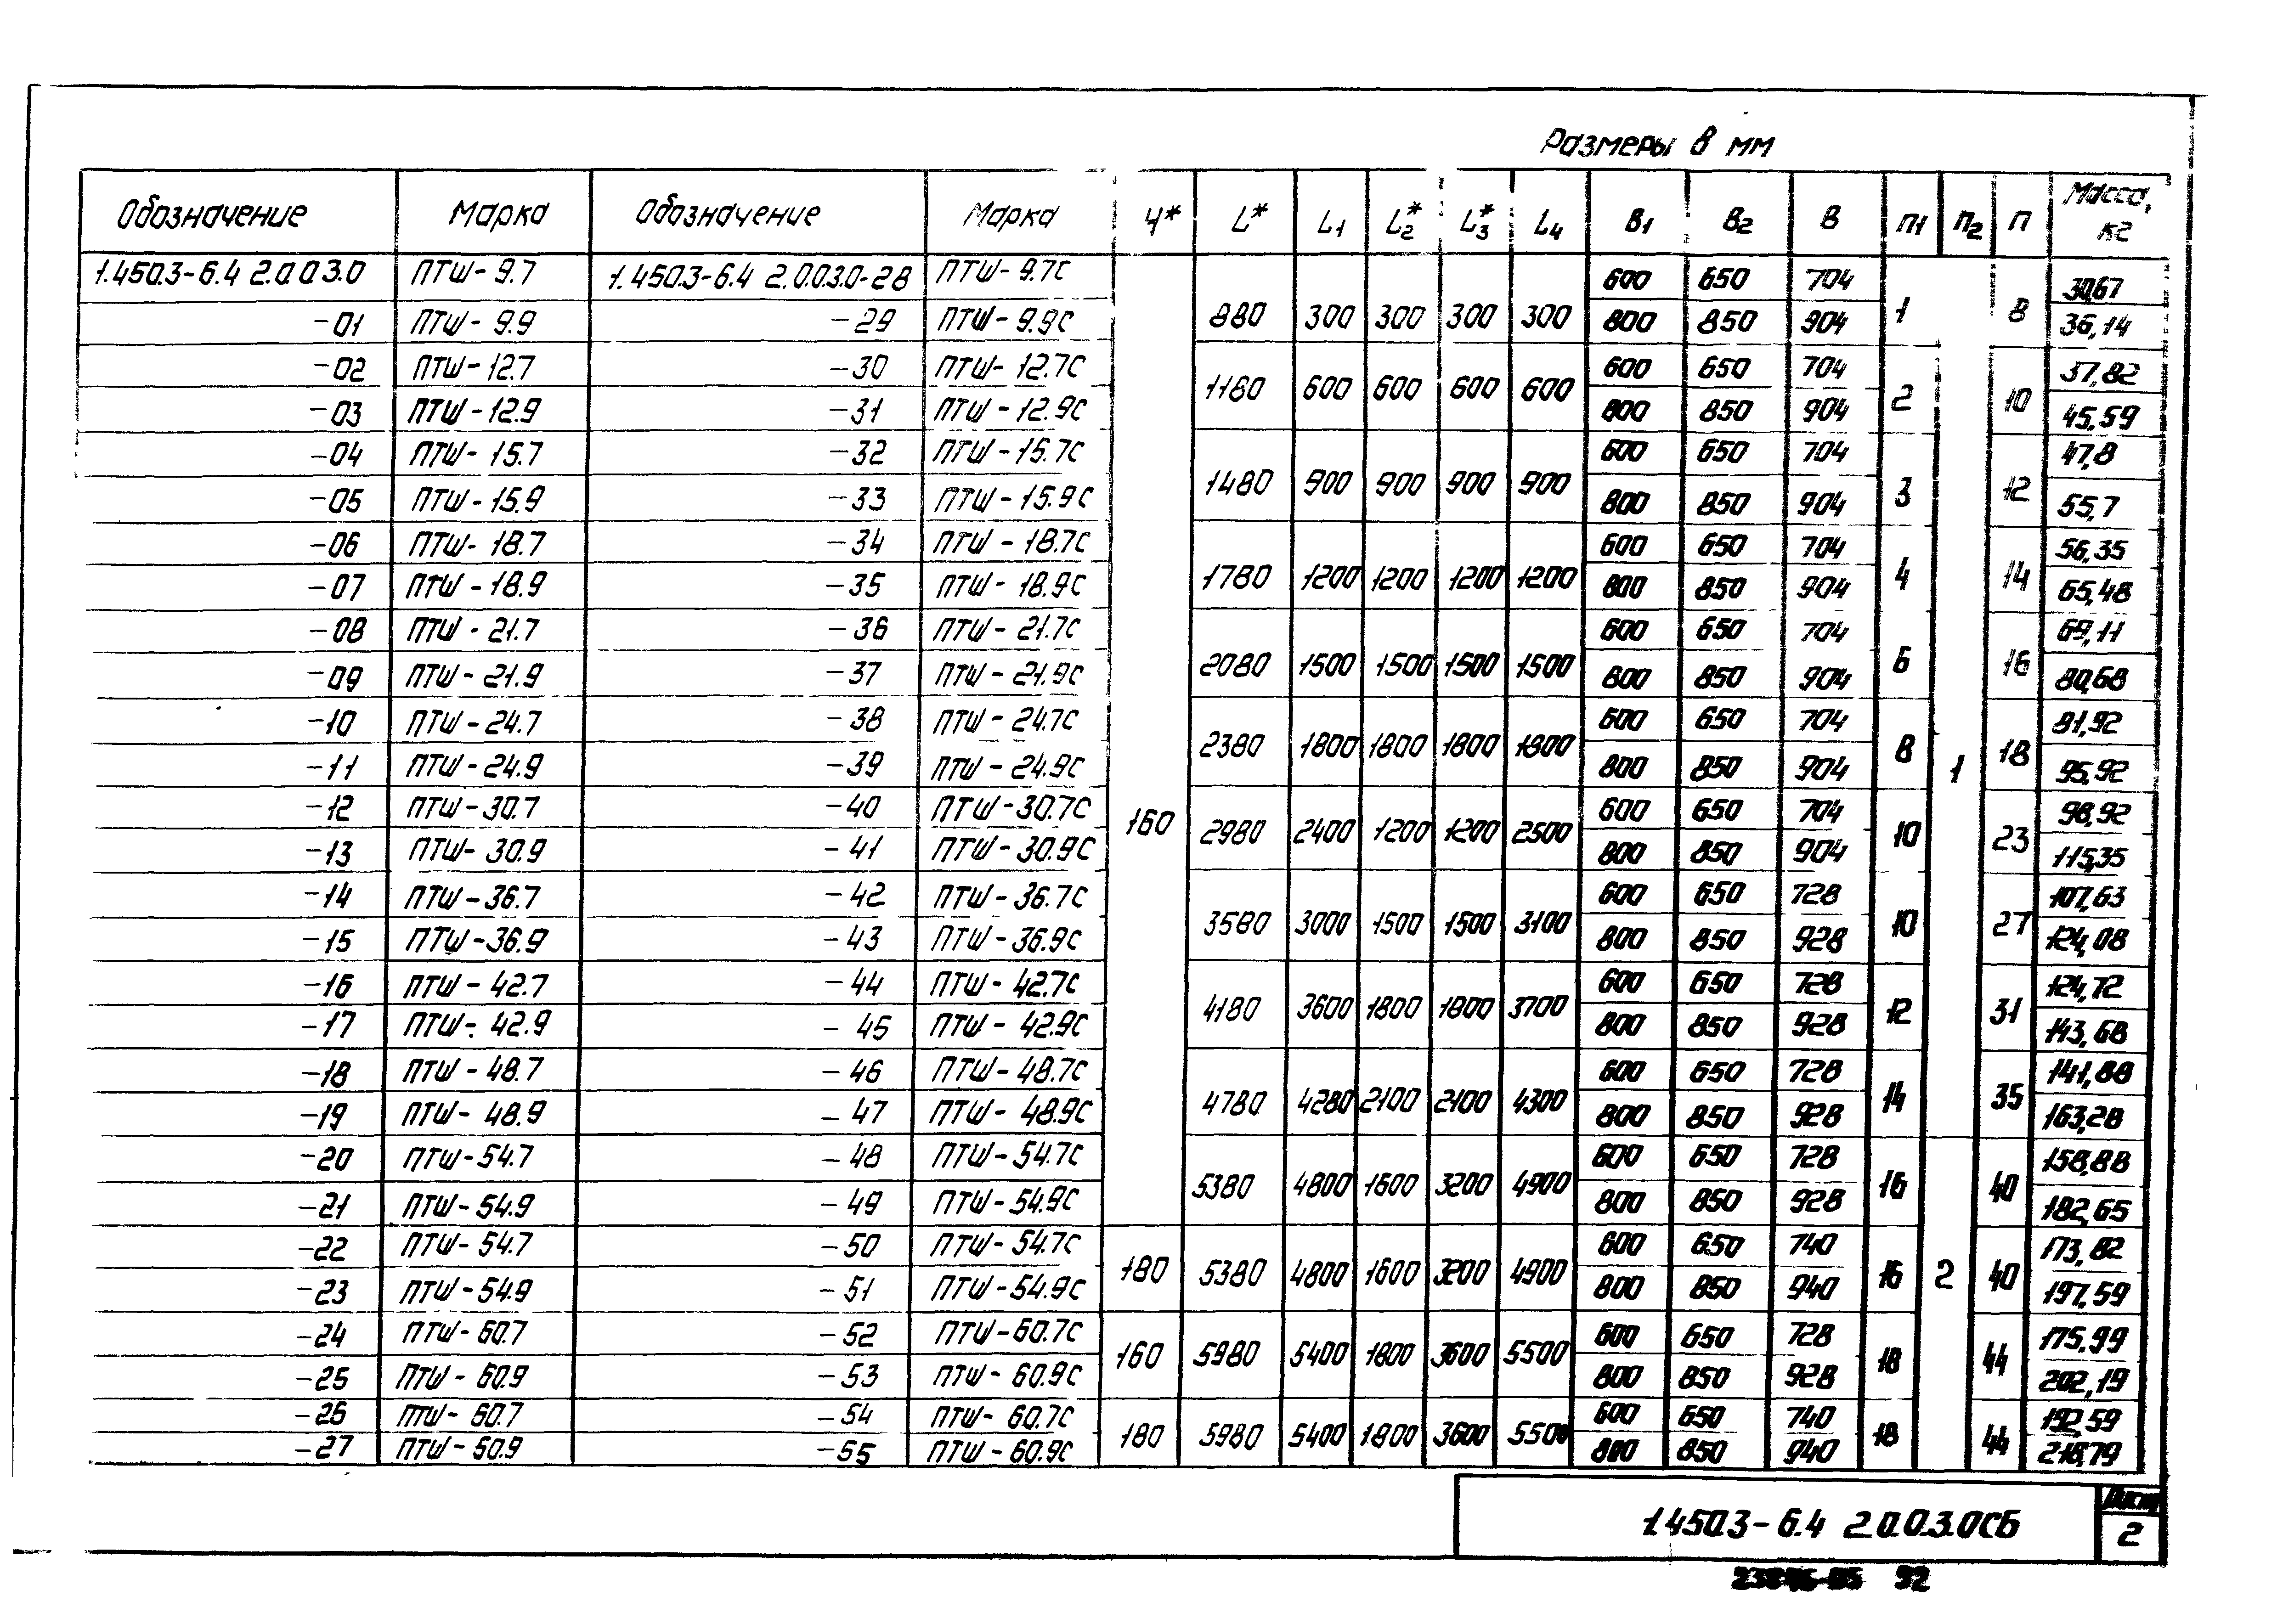 Размеры в мм
Обозначение Марка Обозначение Марка Ч* L* L1 L2* L3* L4 В1 В2 В П1 П2 П Масса, кг
1.450.3-6.4 2.0.0 3.0 ПТШ- 9.7 1.450.3-6.4 2.0.0.3.0-28 ПТШ- 9.7С 160 880 300 300 300 300 600 650 704 1 1 8 30,67
-01 ПТШ- 9.9 -29 ПТШ- 9.9С 800 850 904 36,14
-02 ПТШ- 12.7 -30 ПТШ- 12.7С 1180 600 600 600 600 600 650 704 2 10 37,82
-03 ПТШ-12.9 -31 ПТШ-12.9С 800 850 904 45,59
-04 ПТШ- 15.7 -32 ПТШ-15.7С 1480 900 900 900 900 600 650 704 3 12 47,8
-05 ПТШ-15.9 -33 ПТШ-15.9С 800 850 904 55,7
-06 ПТШ- 18.7 -34 ПТШ-18.7С 1780 1200 1200 1200 1200 600 650 704 4 14 56,35
-07 ПТШ-18.9 -35 ПТШ- 18.9С 800 850 904 65,48
-08 ПТШ-21.7 -36 ПТШ-21.7С 2080 1500 1500 1500 1500 600 650 704 6 16 69,11
-09 ПТШ-21.9 -37 ПТШ-21.9С 800 850 904 80,68
-10 ПТШ-24.7 -38 ПТШ-24.7С 2380 1800 1800 1800 1800 600 650 704 8 18 81,92
-11 ПТШ-24.9 -39 ПТШ-24.9С 800 850 904 95,92
-12 ПТШ-30.7 -40 ПТШ-30.7С 2980 2400 1200 1200 2500 600 650 704 10 23 98,92
-13 ПТШ-30.9 -41 ПТШ-30.9С 800 850 904 115,35
-14 ПТШ-36.7 -42 ПТШ-36.7С 3580 3000 1500 1500 3100 600 650 728 10 27 107,63
-15 ПТШ-36.9 -43 ПТШ-36.9С 800 850 928 124,08
-16 ПТШ-42.7 -44 ПТШ-42.7С 4180 3600 1800 1800 3700 600 650 728 12 31 124,72
-17 ПТШ- 42.9 -45 ПТШ-42.9С 800 850 928 143,68
-18 ПТШ-48.7 -46 ПТШ-48.7С 4780 4280 2100 2100 4300 600 650 728 14 35 141,88
-19 ПТШ-48.9 -47 ПТШ-48.9С 800 850 928 163,28
-20 ПТШ-54.7 -48 ПТШ-54.7С 5380 4800 1600 3200 4900 600 650 728 16 2 40 158,88
-21 ПТШ-54.9 -49 ПТШ-54.9С 800 850 928 182,65
-22 ПТШ-54.7 -50 ПТШ-54.7С 180 5380 4800 1600 3200 4900 600 650 740 16 40 173,82
-23 ПТШ-54.9 -51 ПТШ-54.9С 800 850 940 197,59
-24 ПТШ-60.7 -52 ПТШ-60.7С 160 5980 5400 1800 3600 5500 600 650 728 18 44 175,99
-25 ПТШ-60.9 -53 ПТШ-60.9С 800 850 928 202,19
-26 ПТШ-60.7 -54 ПТШ-60.7С 180 5980 5400 1800 3600 5500 600 650 740 18 44 192,59
-27 ПТШ-60.9 -55 ПТШ-60.9С 800 850 940 218,79
1.450.3-6.4 2.0.0.3.0СБ
Лист
2
92